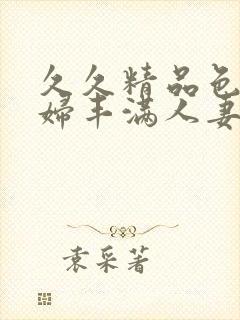 久久精品色
婦丰满人妻
袁采著